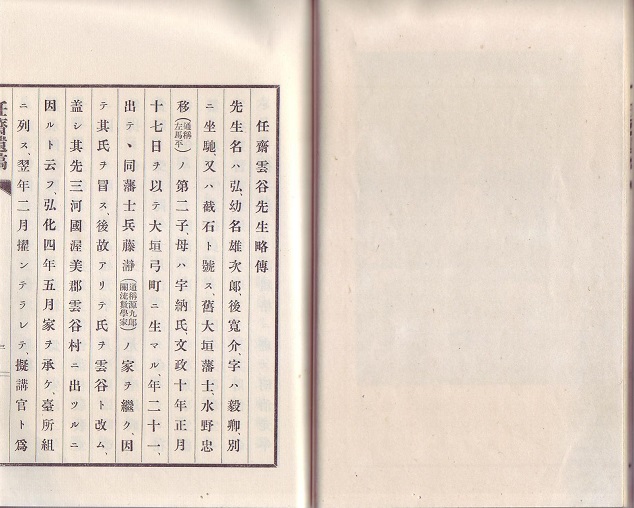 任齋雲谷先生略傳
先生名ハ弘、幼名雄次郎、後寬介、字ハ毅卿、別
ニ坐馳、又ハ截石ト號ス、舊大垣藩士、水野忠
移（通稱左馬平）ノ第二子、母ハ宇納氏、文政十年正月
十七日ヲ以テ大垣弓町ニ生マル、年二十一、
出テヽ同藩士兵藤瀞（通稱源九郎關流數學家）ノ家ヲ繼ク、因
テ其氏ヲ冒ス、後故アリテ氏ヲ雲谷ト改ム、
盖シ其先三河國渥美郡雲谷村ニ出ツルニ
因ルト云フ、弘化四年五月家ヲ承ケ、臺所組
ニ列ス、翌年二月擢ンテラレテ擬講官ト爲
任齋遺稿